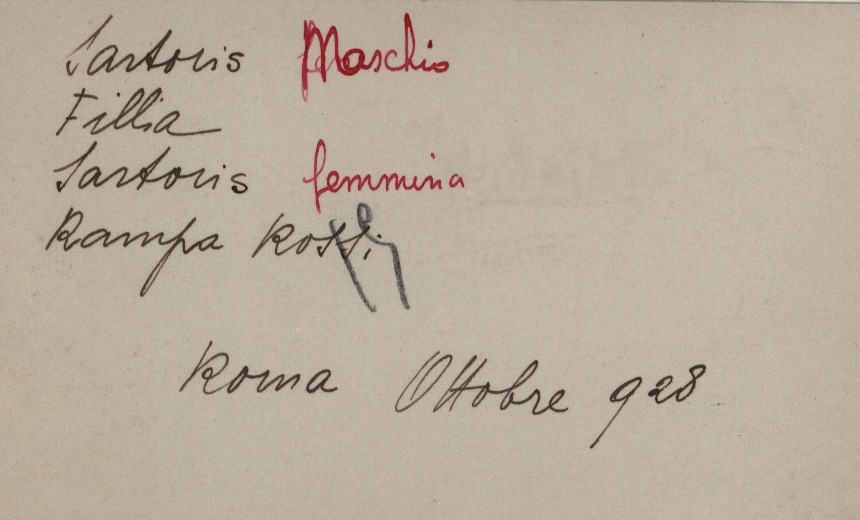 Sartoris Maschio
Fillia
Sartoris femmina
Rampa Rossi
Roma Ottobre 928